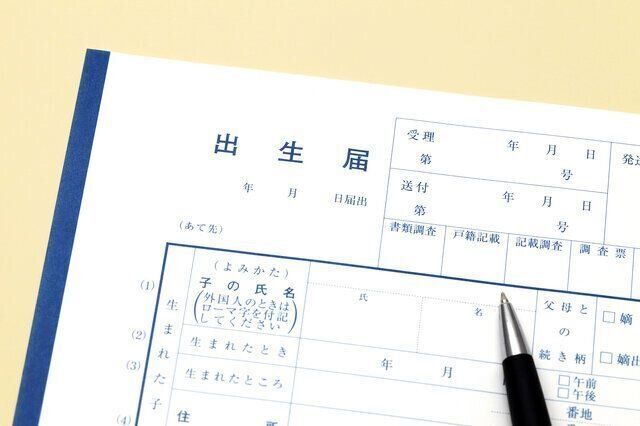 出生届
年 月 日届出
(あて先)
受理 年 月 日
第 号
送付 年 月 日
第 号
書類調査 戸籍記載 記載調査 調査票
(1)
(2)
(3)
(4)
生まれた子
(よみかた)
子の氏名
(外国人のときは
ローマ字を付記
してください)
氏 名
父母と
の
続き柄
□嫡
□嫡出
生まれたとき
年 月
□午前
□午後
生まれたところ
番地
住所